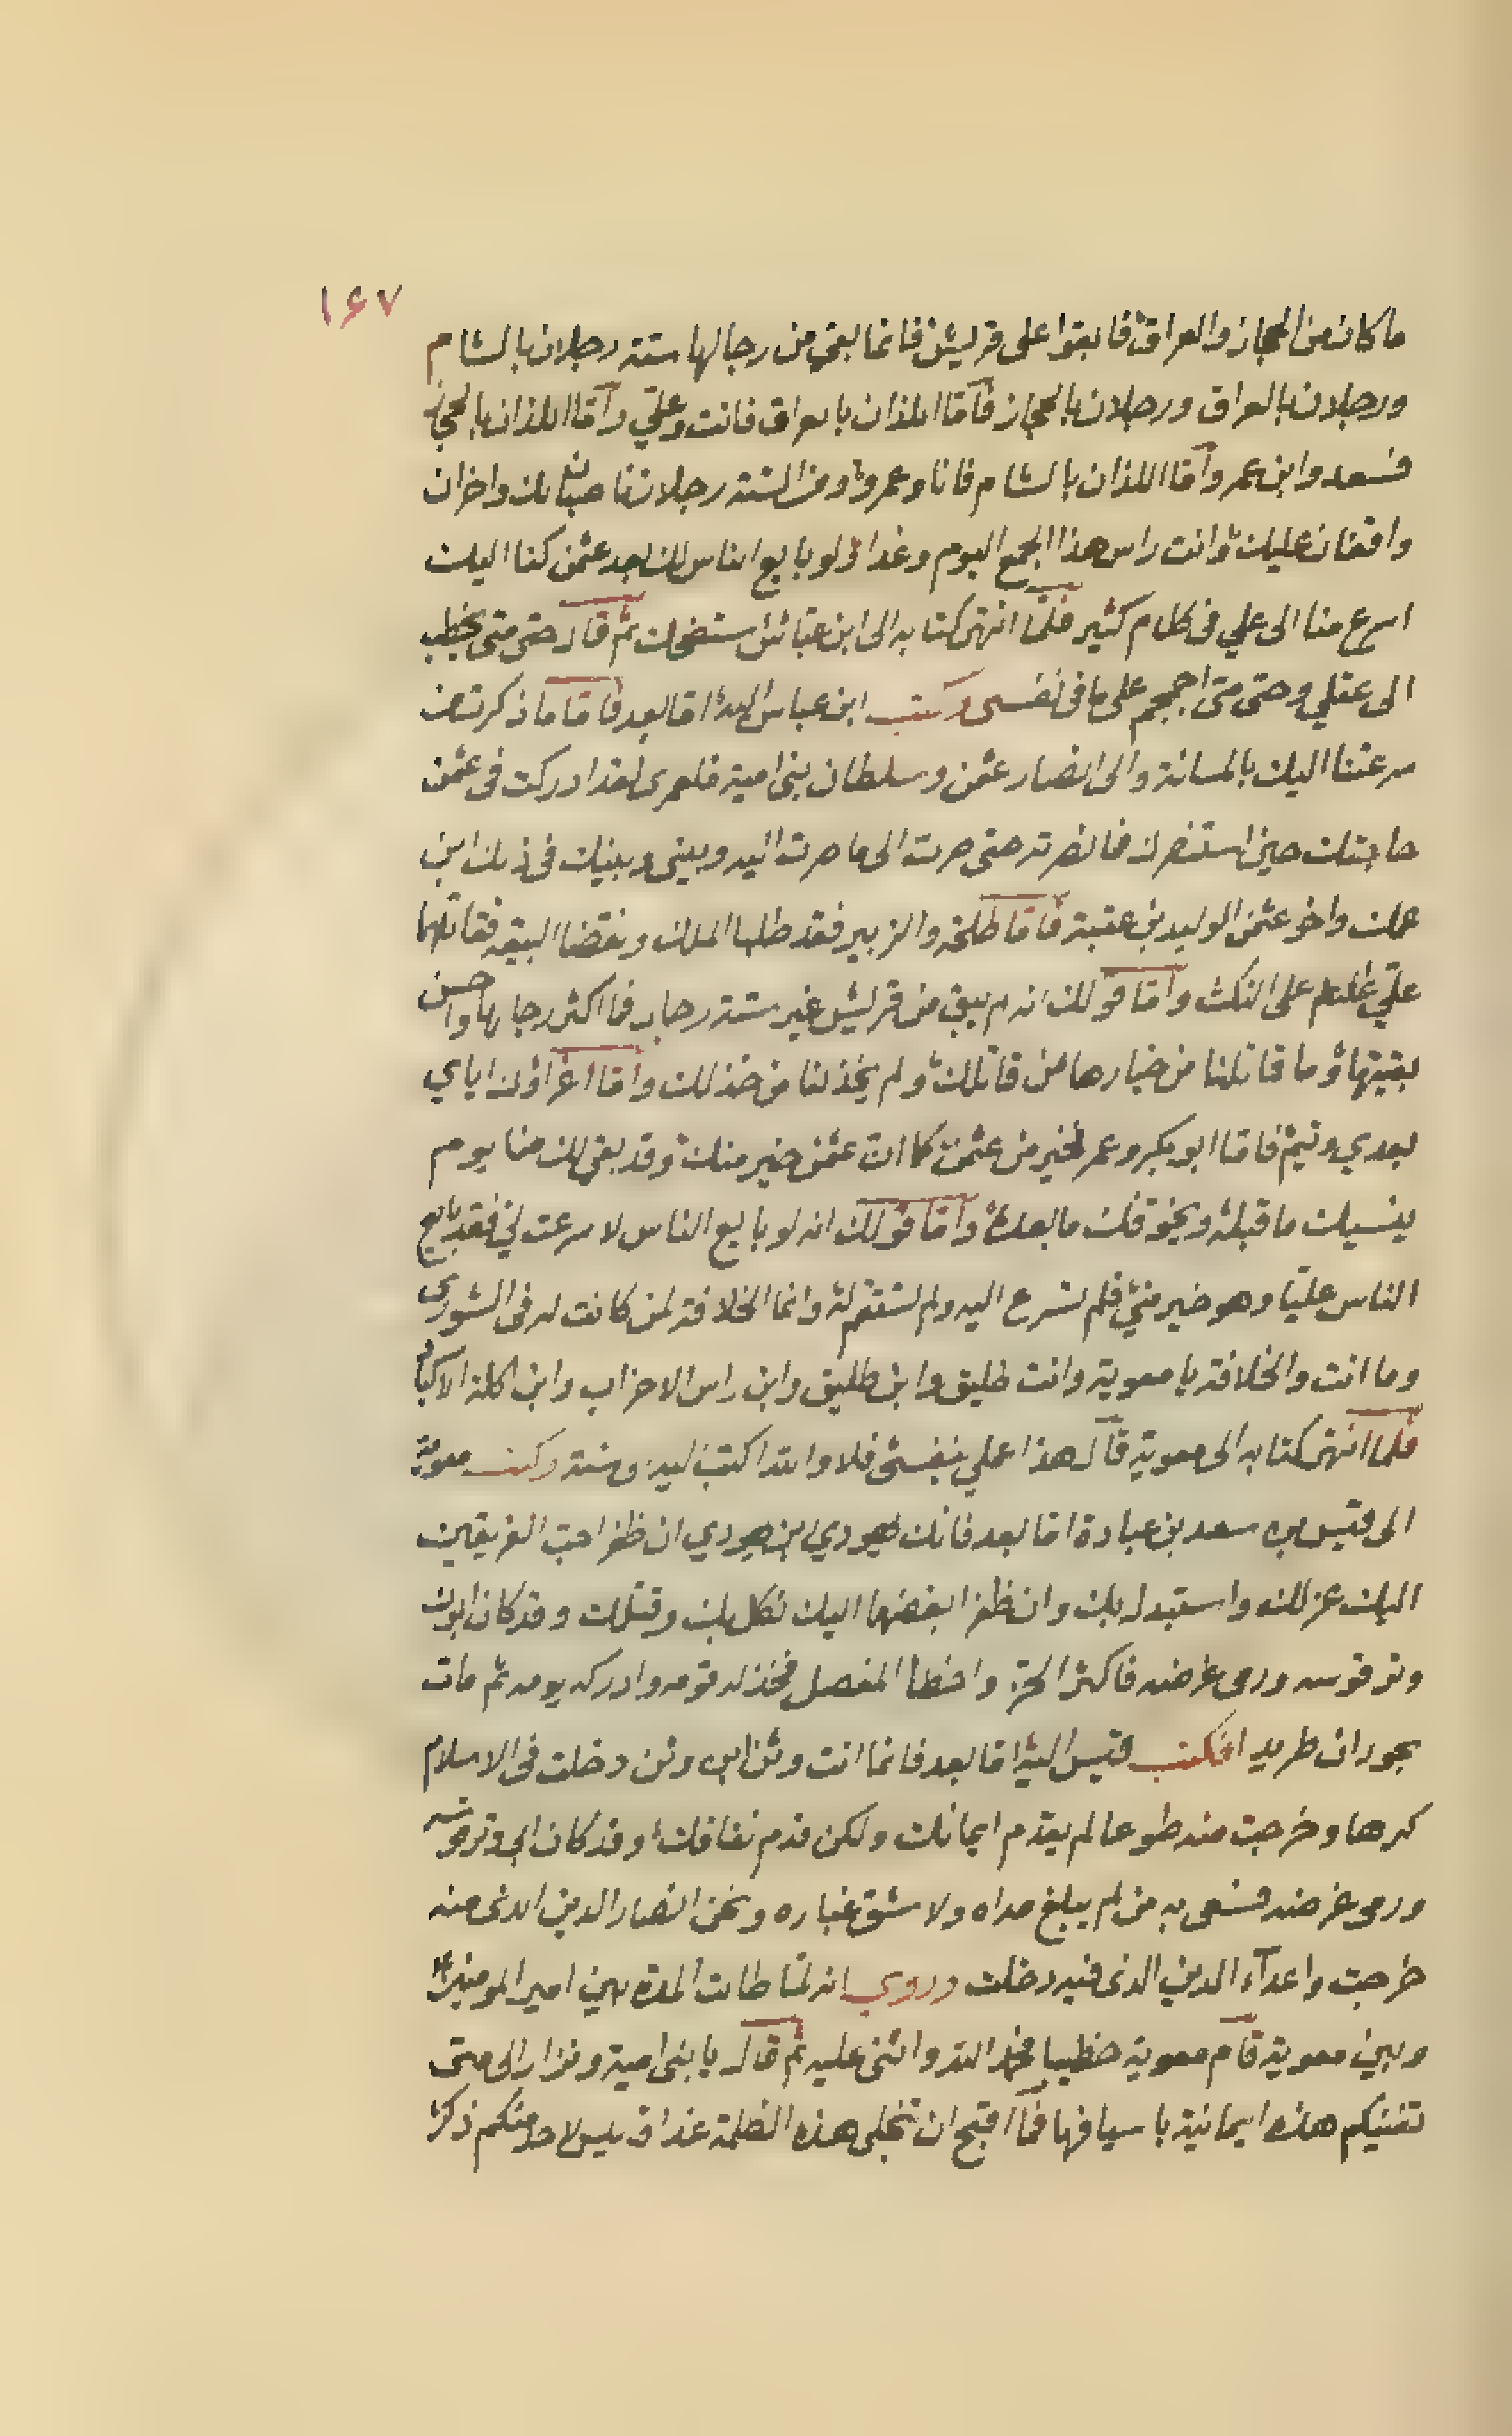 ١۶٧
ما كان من الحجاز والعراق فابقوا على قريش فانما بقي من رجالها ستة رجلان بالشام
ورجلان بالعراق ورجلان بالحجاز فامّا اللذان بالعراق فانت وعليّ وامّا اللذان بالحجاز
فسعد وابن عمر وامّا اللذان بالشام فانا وعمرو ومن الستة رجلان ناصبان لك واخران
واقفان عليك وانت راس هذا الجمع اليوم وغدا ولو بايع الناس لك بعد عثمن كنا اليك
اسرع منا الى علي في كلام كثير فلمّا انتهى كتابه الى ابن عبّاس استضحك ثم قال حتى متى يخطب
الى عقلي وحتى متى اجمجم على ما في نفسي وكتب ابن عباس اليه امّا بعد فامّا ما ذكرت من
سرعتنا اليك بالمسائة والى انصار عثمن وسلطان بني امية فلعمري لقد ادركت في عثمن
حاجتك حين استنصرك فما نصرته حتى صرت الى ما صرت اليه وبيني وبينك في ذلك ابن
عمك واخو عثمن الوليد بن عقبة فامّا طلحة والزبير فقد طلبا الملك ونقضا البيعة فقاتلهما
عليّ عليهم على النكث وامّا قولك انه لم يبق من قريش غير ستة رجال فما اكثر رجالها واحسن
بقيتها وما قاتلنا من خيارها من قاتلك ولم يخذلنا من خذلك وامّا اغراؤك اياي
بعدي وتيم فامّا ابو بكر وعمر لخير من عثمن كما ان عثمن خير منك وقد بقي لك منا يوم
ينسيك ما قبله ويخوفك ما بعده وامّا قولك انه لو بايع الناس لاسرعت لي فقد بايع
الناس عليّا وهو خير منّي فلم تسرع اليه ولم تستقم له وانما الخلافة لمن كانت له في الشورى
وما انت والخلافة يا معوية وانت طليق وابن طليق وابن راس الاحزاب وابن اكلة الاكباد
فلما انتهى كتابه الى معوية قال هذا عملي بنفسي فلا والله اكتب اليه سنة وكتب معوية
الى قيس بن سعد بن عبادة امّا بعد فانك يهودي ابن يهودي ان ظفر احب الفريقين
اليك عزلك واستبدل بك وان ظفر ابغضهما اليك نكل بك وقتلك وقد كان ابوك
وتر قوسه ورمى غرضه فاكثر الحز واخطا المفصل فخذله قومه وادركه يومه ثم مات
بحوران طريدا فكتب قيس اليه امّا بعد فانما انت وثن ابن وثن دخلت في الاسلام
كرها وخرجت منه طوعا لم يقدم ايمانك ولكن قدم نفاقك وقد كان ابي وتر قوسه
ورمى غرضه فسعى به من لم يبلغ مداه ولا شق غباره ونحن انصار الدين الذي منه
خرجت واعداء الدين الذي فيه دخلت وروي انه لمّا طالت المدة بين امير المومنين
وبين معوية قام معوية خطيبا فحمد الله واثنى عليه ثم قال يا بني امية ونزار الى متى
تفنيكم هذه اليمانية باسيافها فما اقبح ان تنجلي هذه الظلمة غدا و ليس لاحد منكم ذكر